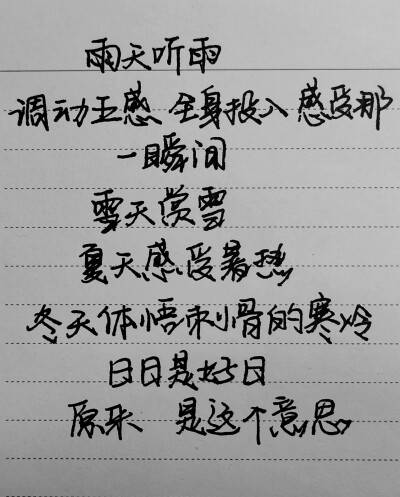 雨天听雨
调动五感 全身投入 感受那
一瞬间
雪天赏雪
夏天感受暑热
冬天体悟刺骨的寒冷
日日是好日
原来 是这个意思